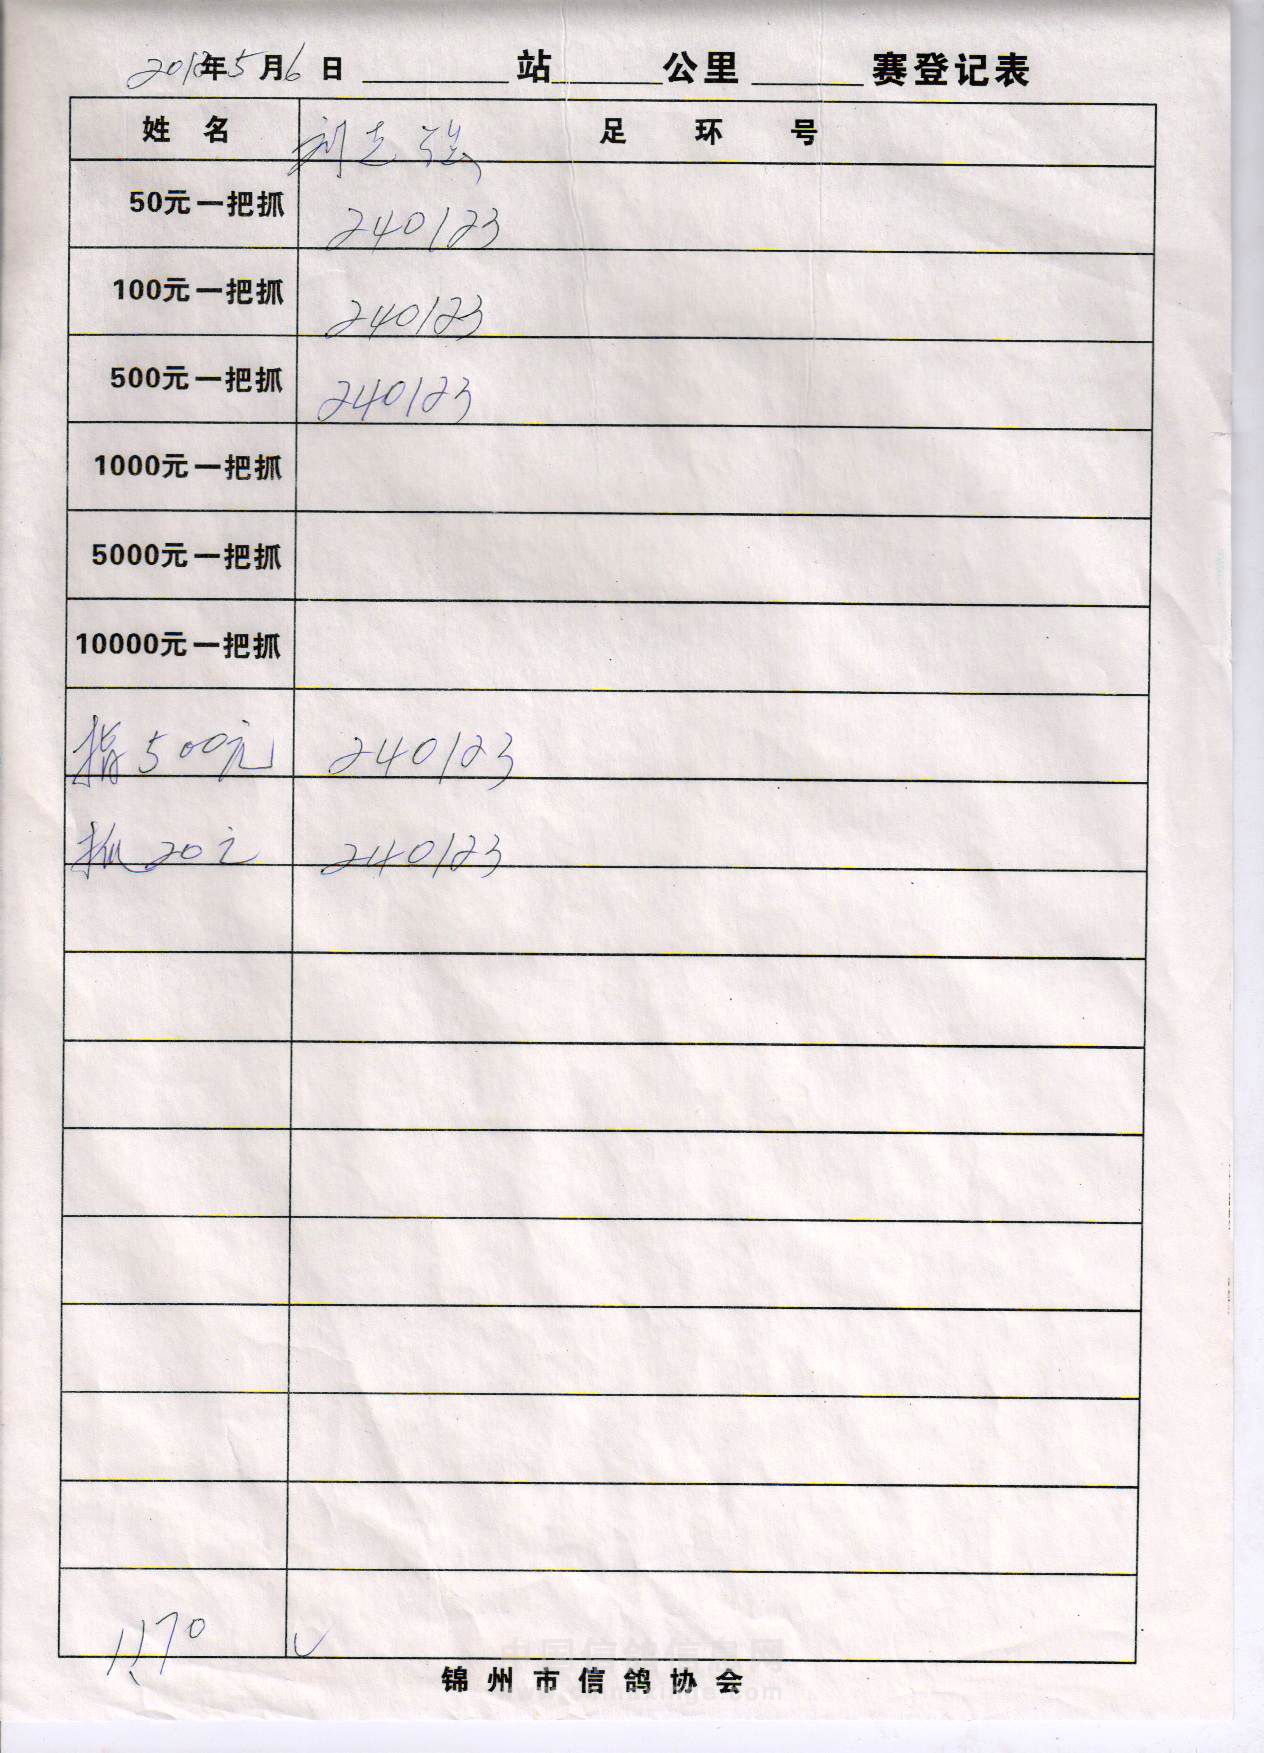 2012年5月6日 站 公里 赛登记表
姓 名 刘志强 足 环 号
50元一把抓 240123
100元一把抓 240123
500元一把抓 240123
1000元一把抓
5000元一把抓
10000元一把抓
指500元 240123
抓20元 240123
1170
中国信鸽信息网
锦州市信鸽协会